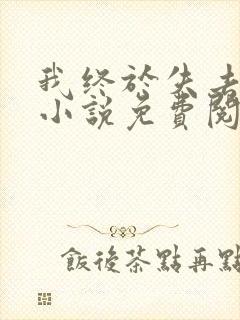 我终於失去
小說免費閱
飯後茶點再點